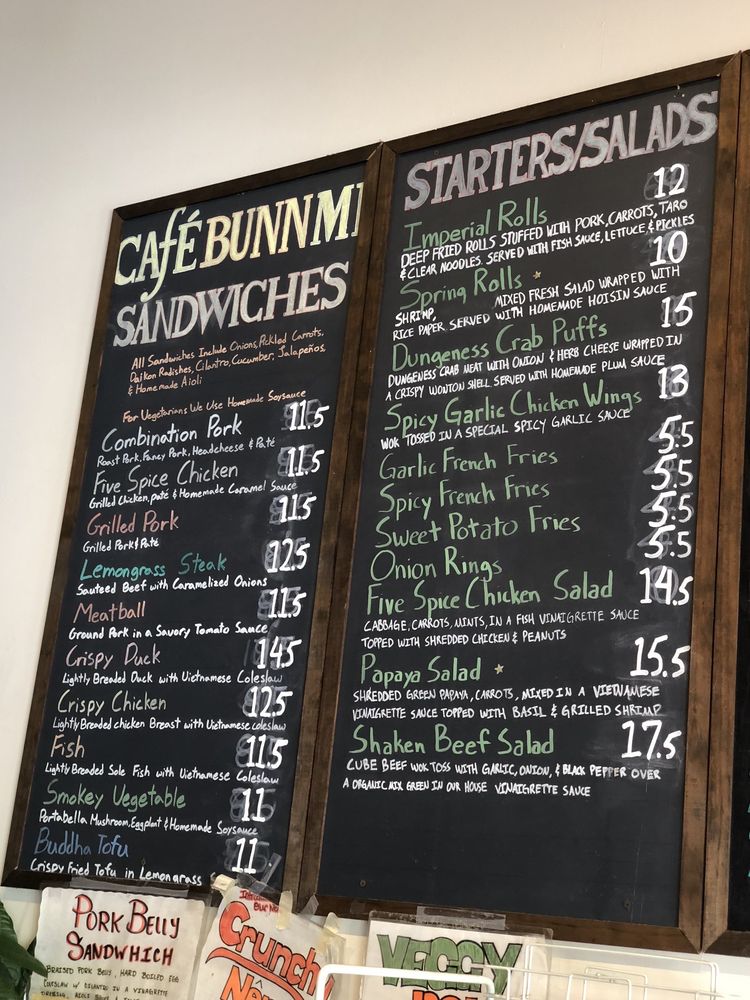 Café BUNN MI
SANDWICHES
All Sandwiches Include Onions, Pickled Carrots,
Daikon Radishes, Cilantro, Cucumber, Jalapeños,
& Homemade Aioli
For Vegetarians We Use Homemade Soysauce
Combination Pork 11.5
Roast Pork, Fancy Pork, Headcheese & Paté
Five Spice Chicken 11.5
Grilled Chicken, paté & Homemade Caramel Sauce
Grilled Pork 11.5
Grilled Pork & Paté
Lemongrass Steak 12.5
Sauteed Beef with Caramelized Onions
Meatball 11.5
Ground Pork in a Savory Tomato Sauce
Crispy Duck 14.5
Lightly Breaded Duck with Vietnamese Coleslaw
Crispy Chicken 12.5
Lightly Breaded chicken Breast with Vietnamese coleslaw
Fish 11.5
Lightly Breaded Sole Fish with Vietnamese Coleslaw
Smokey Vegetable 11
Portabella Mushroom, Eggplant & Homemade Soysauce
Buddha Tofu 11
Crispy Fried Tofu in Lemongrass
STARTERS/SALADS
Imperial Rolls 12
DEEP FRIED ROLLS STUFFED WITH PORK, CARROTS, TARO
& CLEAR NOODLES. SERVED WITH FISH SAUCE, LETTUCE & PICKLES
Spring Rolls 10
SHRIMP, MIXED FRESH SALAD WRAPPED WITH
RICE PAPER SERVED WITH HOMEMADE HOISIN SAUCE
Dungeness Crab Puffs 15
DUNGENESS CRAB MEAT WITH ONION & HERB CHEESE WRAPPED IN
A CRISPY WONTON SHELL SERVED WITH HOMEMADE PLUM SAUCE
Spicy Garlic Chicken Wings 13
WOK TOSSED IN A SPECIAL SPICY GARLIC SAUCE
Garlic French Fries 5.5
Spicy French Fries 5.5
Sweet Potato Fries 5.5
Onion Rings 5.5
Five Spice Chicken Salad 14.5
CABBAGE, CARROTS, MINTS, IN A FISH VINAIGRETTE SAUCE
TOPPED WITH SHREDDED CHICKEN & PEANUTS
Papaya Salad 15.5
SHREDDED GREEN PAPAYA, CARROTS, MIXED IN A VIETNAMESE
VINAIGRETTE SAUCE TOPPED WITH BASIL & GRILLED SHRIMP
Shaken Beef Salad 17.5
CUBE BEEF WOK TOSS WITH GARLIC, ONION, & BLACK PEPPER OVER
A ORGANIC MIX GREEN IN OUR HOUSE VINAIGRETTE SAUCE
PORK BELLY
SANDWHICH
BRAISED PORK BELLY, HARD BOILED EGG
COLESLAW W/ CILANTRO IN A VINAGRETTE
Crunchy
VEGGY